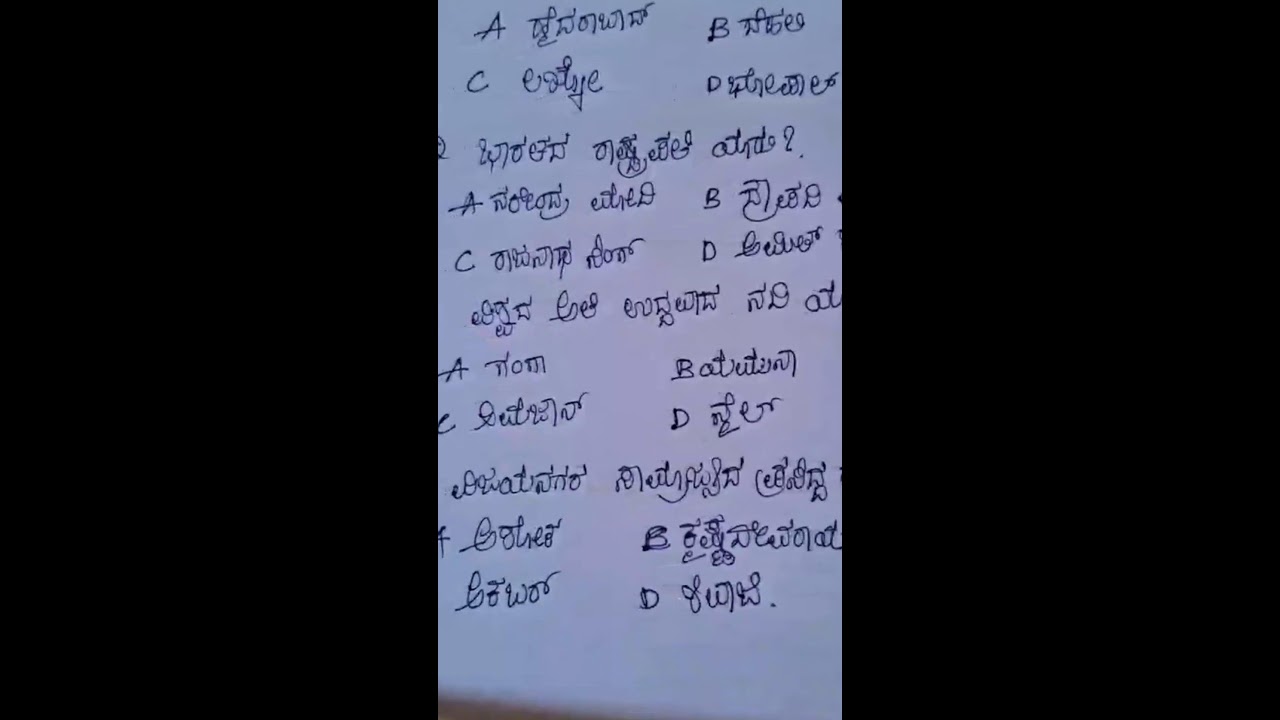 A ಹೈದರಾಬಾದ್ B ದೆಹಲಿ
C ಲಕ್ನೋ D ಭೋಪಾಲ್
2 ಭಾರತದ ರಾಷ್ಟ್ರಪತಿ ಯಾರು?
A ನರೇಂದ್ರ ಮೋದಿ B ದ್ರೌಪದಿ
C ರಾಜನಾಥ ಸಿಂಗ್ D ಅಮಿತ್
ವಿಶ್ವದ ಅತಿ ಉದ್ದವಾದ ನದಿ ಯಾ
A ಗಂಗಾ B ಯಮುನಾ
C ಅಮೇಜಾನ್ D ನೈಲ್
ವಿಜಯನಗರ ಸಾಮ್ರಾಜ್ಯದ ಪ್ರಸಿದ್ಧ
A ಅಶೋಕ B ಕೃಷ್ಣದೇವರಾಯ
ಅಕಬರ್ D ಶಿವಾಜಿ.